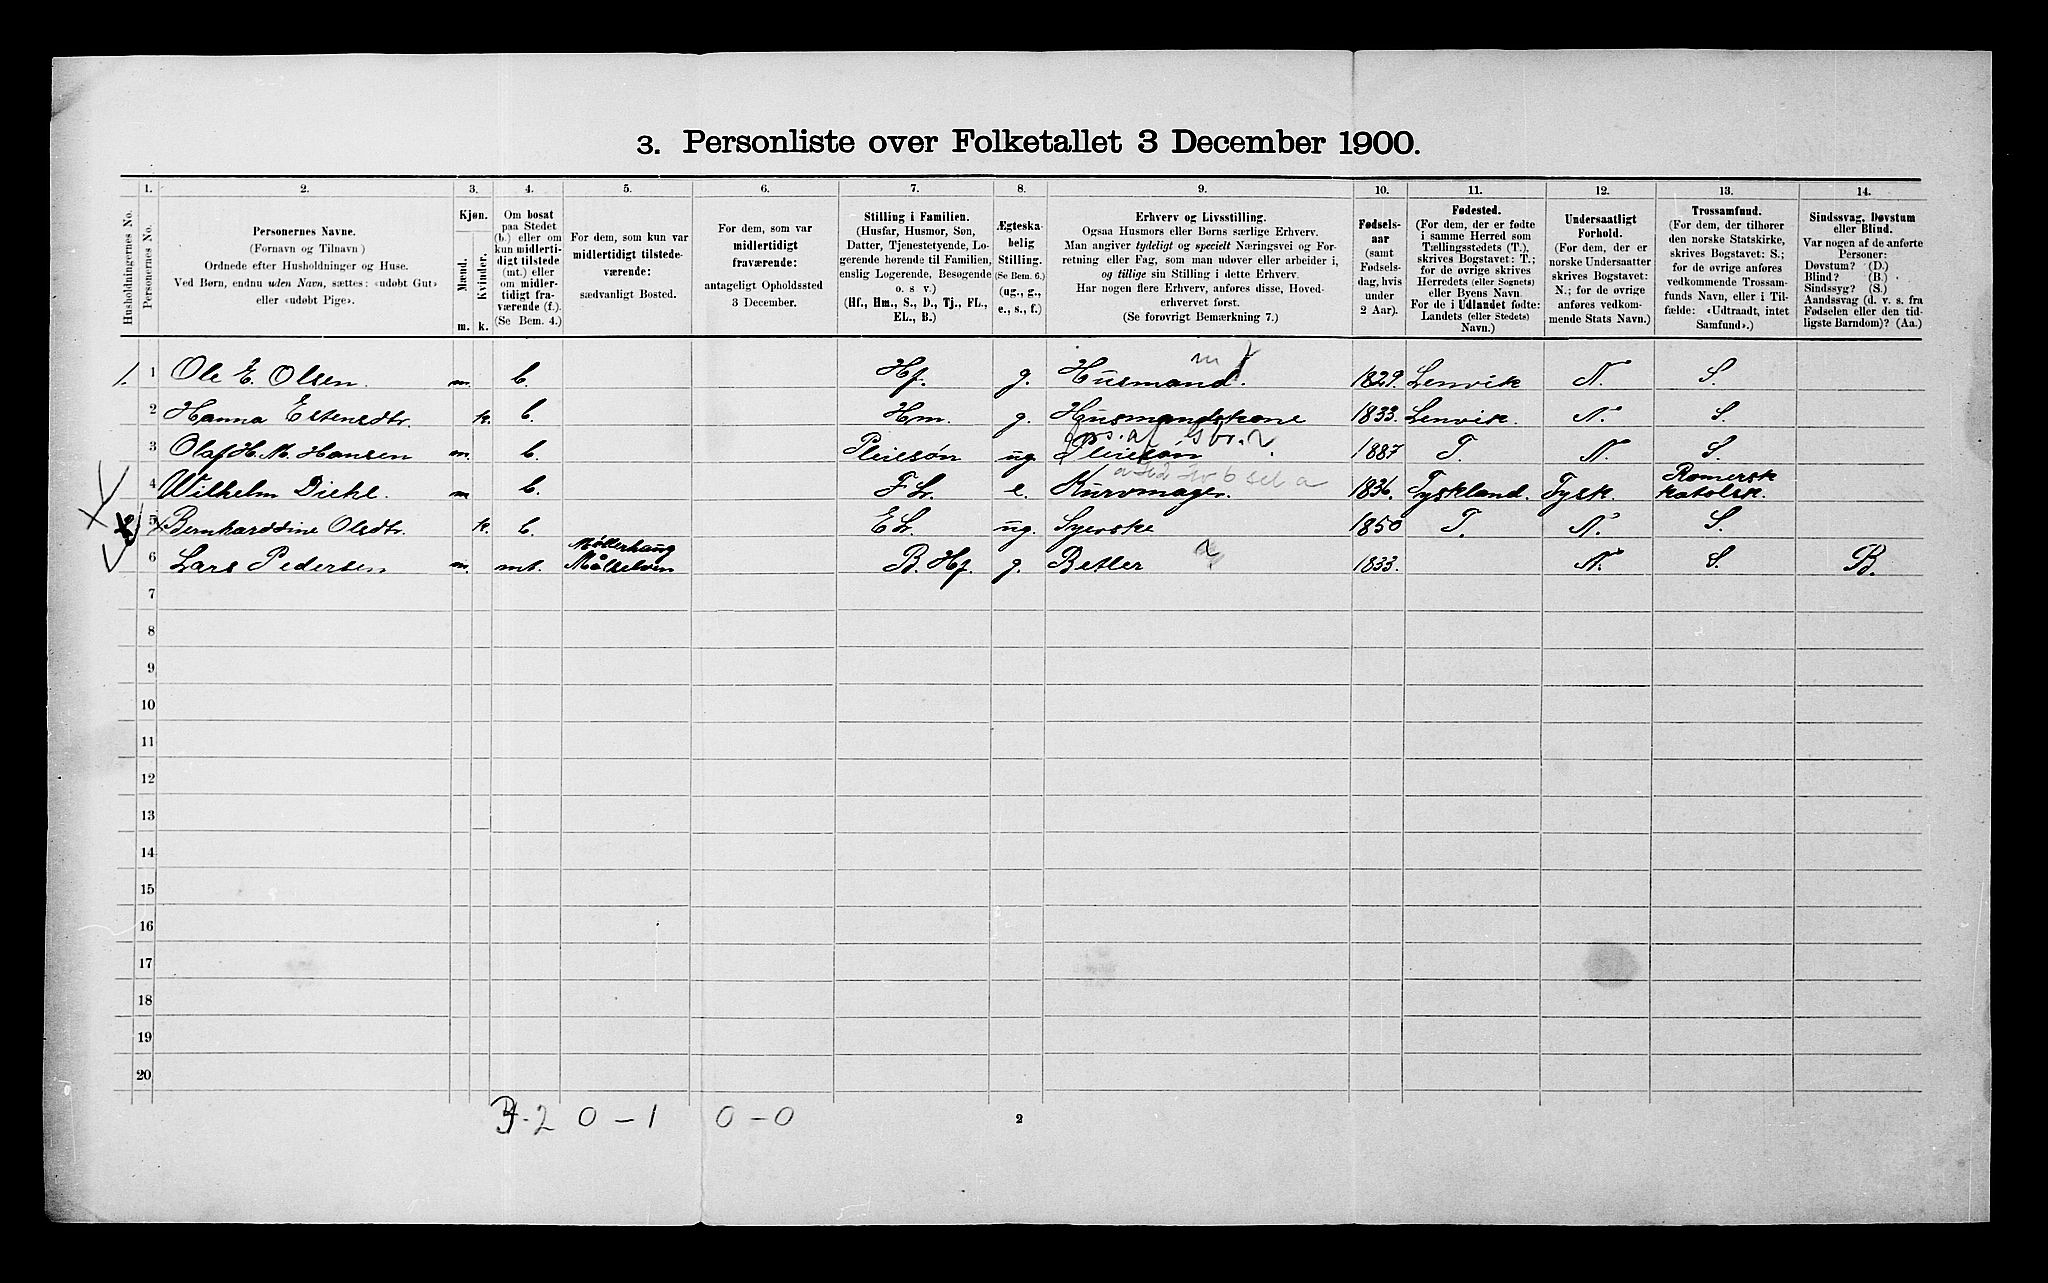 3. Personliste over Folketallet 3 December 1900.
Husholdningernes No.
1. Personernes No.
2. Personernes Navne.
(Fornavn og Tilnavn)
Ordnede efter Husholdninger og Huse.
Ved Børn, endnu uden Navn, sættes: «udøbt Gut»
eller «udøbt Pige».
3. Kjøn.
Mænd. Kvinder.
m. k.
4. Om bosat
paa Stedet
(b.) eller om
kun midlerti-
digt tilstede
(mt.) eller
om midler-
tidigt fra-
værende (f.).
(Se Bem. 4.)
5. For dem, som kun var
midlertidigt tilstede-
værende:
sædvanligt Bosted.
6. For dem, som var
midlertidigt
fraværende:
antageligt Opholdssted
3 December.
7. Stilling i Familien.
(Husfar, Husmor, Søn,
Datter, Tjenestetyende, Lo-
gerende hørende til Familien,
enslig Logerende, Besøgende
o. s v.)
(Hf., Hm., S., D., Tj., FL.,
EL., B.)
8. Ægteska-
belig
Stilling.
(Se Bem. 6.)
(ug., g.,
e., s., f.)
9. Erhverv og Livsstilling.
Ogsaa Husmors eller Børns særlige Erhverv.
Man angiver tydeligt og specielt Næringsvei og For-
retning eller Fag, som man udøver eller arbeider i,
og tillige sin Stilling i dette Erhverv.
Har nogen flere Erhverv, anføres disse, Hoved-
erhvervet først.
(Se forøvrigt Bemærkning 7.)
10. Fødsels-
aar
(samt
Fødsels-
dag, hvis
under
2 Aar).
11. Fødested.
(For dem, der er fødte
i samme Herred som
Tællingsstedets (T.),
skrives Bogstavet: T.;
for de øvrige skrives
Herredets (eller Sognets)
eller Byens Navn.
For de i Udlandet fødte:
Landets (eller Stedets)
Navn.)
12. Undersaatligt
Forhold.
(For dem, der er
norske Undersaatter
skrives Bogstavet:
N.; for de øvrige
anføres vedkom-
mende Stats Navn.)
13. Trossamfund.
(For dem, der tilhører
den norske Statskirke,
skrives Bogstavet: S.;
for de øvrige anføres
vedkommende Trossam-
funds Navn, eller i Til-
fælde: «Udtraadt, intet
Samfund».)
14. Sindssvag, Døvstum
eller Blind.
Var nogen af de anførte
Personer:
Døvstum? (D.)
Blind? (B.)
Sindssyg? (S.)
Aandssvag (d. v. s. fra
Fødselen eller den tid-
ligste Barndom)? (Aa.)
1. 1 Ole E. Olsen. m. b. Hf. g. Husmand. 1829. Lenvik N. S.
2 Hanna Estensdtr. k. b. Hm. g. Husmandskone 1833. Lenvik. N. S.
3 Olaf H. M. Hansen m. b. Pleiesøn ug Pleiesøn 1887 T. N. S
4 Wilhelm Diehl. m b. F Lr. e. Kurvmager. 1836. Tyskland. Tysk. Romersk katolsk.
5 Bernharddine Olsdtr. k. b. E Lr. ug. Syerske 1850 T. N. S.
6 Lars Pedersen m. mt. Møllerhaug Målselven B. Hf. g. Betler 1833. N. S. B.
7
8
9
10
11
12
13
14
15
16
17
18
19
20
2 0 – 1 0 – 0
2